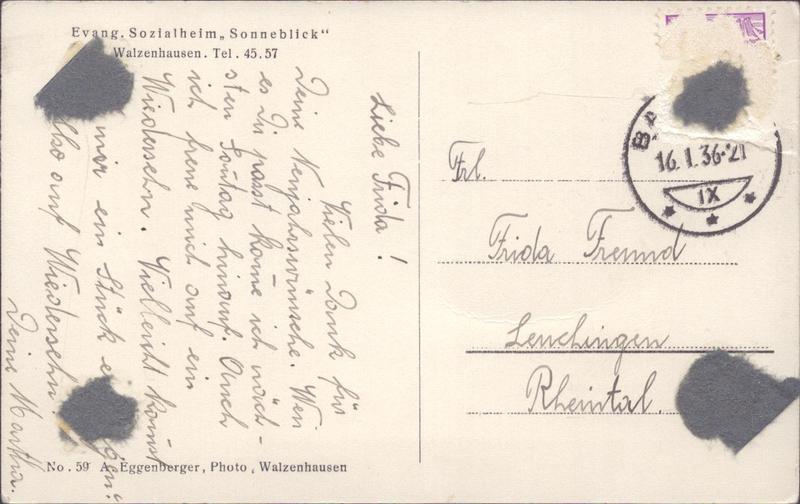 Evang. Sozialheim „Sonneblick"
Walzenhausen. Tel. 45.57
Liebe Frida!
Vielen Dank für
Deine Neujahrswünsche. Wen
es Dir passt kome ich näch-
sten Sontag hinauf. Auch
ich freue mich auf ein
Wiedersehn. Vielleicht kanst
mir ein Stück
auf Wiedersehn!
Deine Martha.
No. 59 A. Eggenberger, Photo, Walzenhausen
16.I.36-21
IX
Frl.
Frida Freund
Leuchingen
Rheintal.